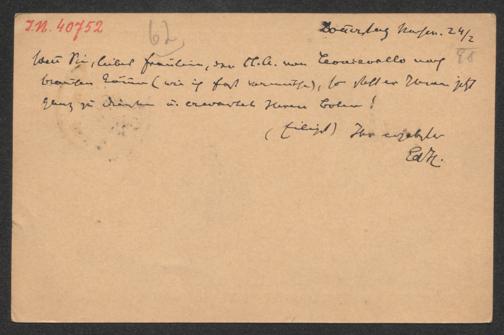 I.N. 40752
62
Donnerstag Nachm. 24/2
88
Wenn Sie, liebes Fräulein, den Kl.A. von Leoncavallo noch
brauchen können (wie ich fast vermuthe), so steht er Ihnen jetzt
ganz zu Diensten u. erwartet Ihren Boten!
(Eiligst) Ihr ergebster
EdH.